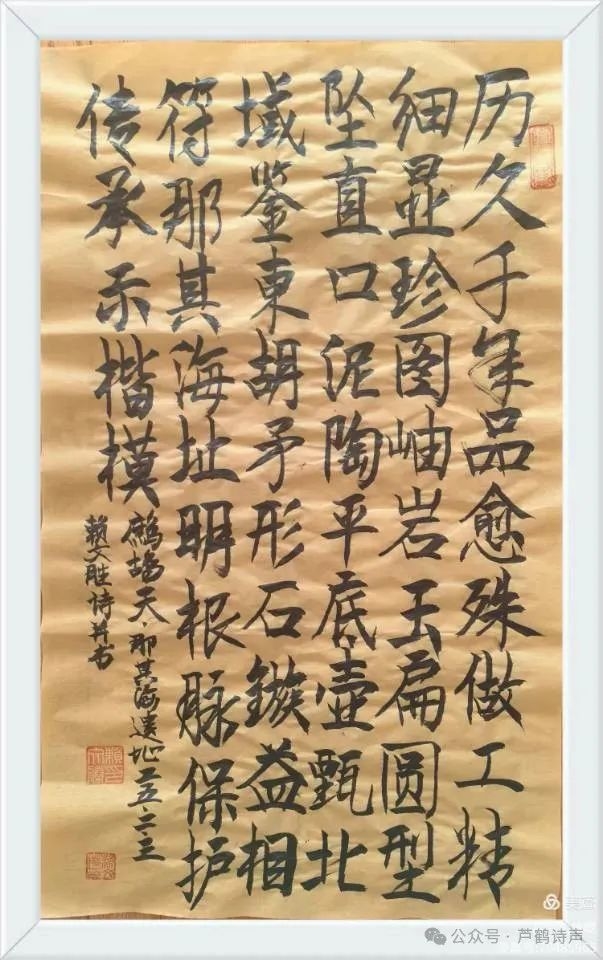 历久千年品愈殊做工精
细显珍图岫岩玉扁圆型
坠直口泥陶平底壶甄北
域鉴東胡矛形石镞益相
符那其海址明根脉保护
传承示楷模
鹧鸪天·那其海遗址二五·二·三
赖文胜诗并书
公众号·芦鹤诗声